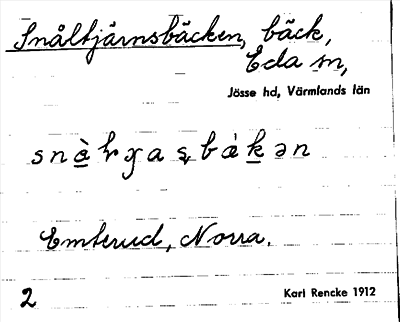 Snåltjärnsbäcken, bäck,
Eda sn,
Jösse hd, Värmlands län
Emterud, Norra.
2
Karl Rencke 1912